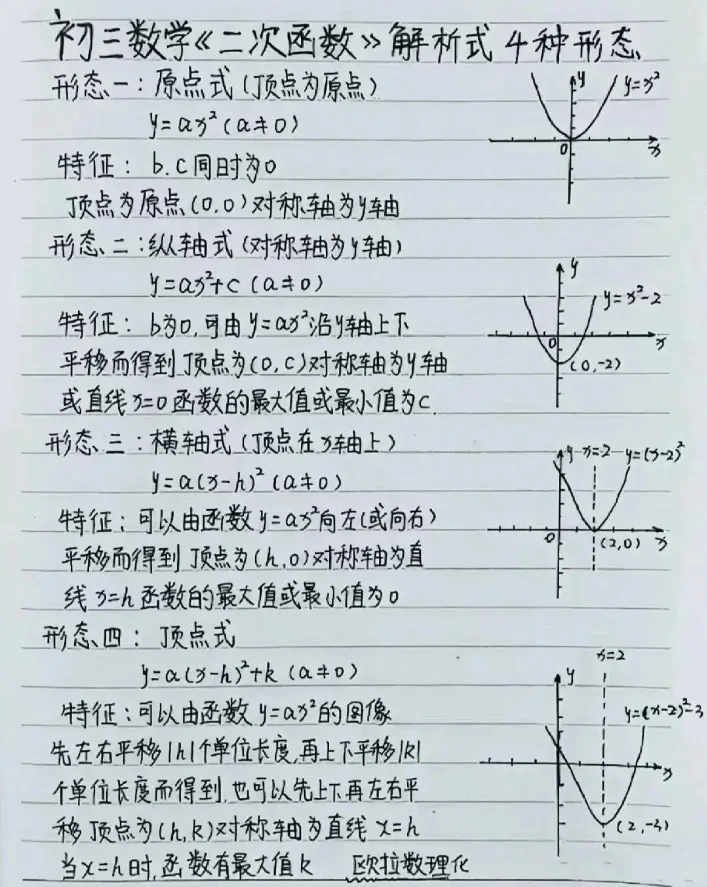 初三数学《二次函数》解析式4种形态
形态一：原点式(顶点为原点)
y=ax²(a≠0)
特征：b.c同时为0
顶点为原点(0.0)对称轴为y轴
y
y=x²
0
x
形态二：纵轴式(对称轴为y轴)
y=ax²+c(a≠0)
特征：b为0，可由y=ax²沿y轴上下
平移而得到顶点为(0,c)对称轴为y轴
或直线x=0函数的最大值或最小值为c.
y
y=x²-2
0
x
(0,-2)
形态三：横轴式(顶点在x轴上)
y=a(x-h)²(a≠0)
特征：可以由函数y=ax²向左(或向右)
平移而得到顶点为(h,0)对称轴为直
线x=h函数的最大值或最小值为0
y
x=2
y=(x-2)²
0
(2,0)
x
形态四：顶点式
y=a(x-h)²+k(a≠0)
特征：可以由函数y=ax²的图像
先左右平移|h|个单位长度,再上下平移|k|
个单位长度而得到.也可以先上下再左右平
移顶点为(h,k)对称轴为直线x=h
当x=h时,函数有最大值k
欧拉数理化
x=2
y
y=(x-2)²-3
x
(2,-3)